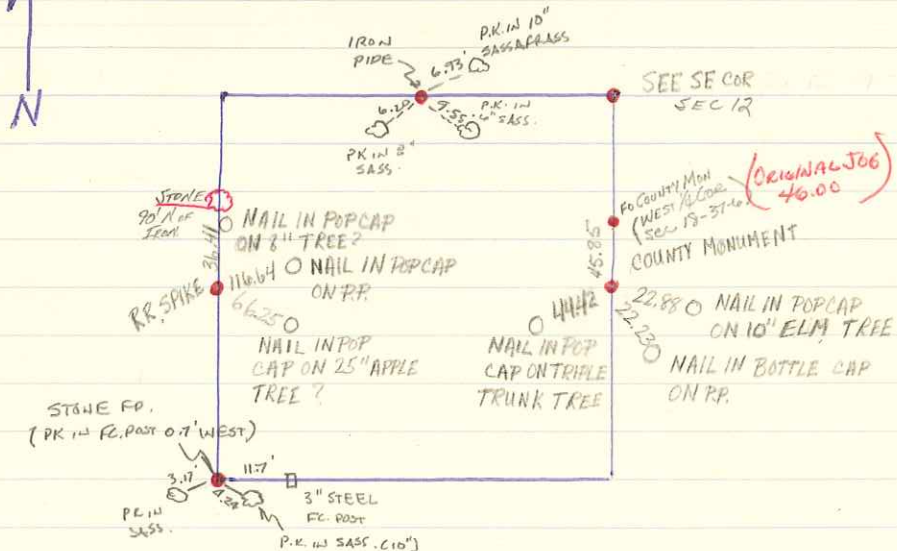 N
IRON
PIPE
6.93'
P.K. IN 10"
SASSAFRASS
6.20
PK IN 8"
SASS.
9.55
P.K. IN
6" SASS.
SEE SE COR
SEC 12
STONE
90' N OF
IRON
36.41
NAIL IN POPCAP
ON 8" TREE?
R.R. SPIKE
116.64
NAIL IN POPCAP
ON P.P.
66.25
NAIL IN POP
CAP ON 25" APPLE
TREE?
FD COUNTY MON
(WEST 1/4 COR
SEC 18-37-6)
(ORIGINAL JOB
46.00)
45.85
COUNTY MONUMENT
44.42
NAIL IN POP
CAP ON TRIPLE
TRUNK TREE
22.88
NAIL IN POPCAP
ON 10" ELM TREE
22.23
NAIL IN BOTTLE CAP
ON P.P.
STONE FD.
(PK IN FC. POST 0.7' WEST)
3.17'
PK IN
SASS.
4.24
P.K. IN SASS. (10")
11.7'
3" STEEL
FC. POST